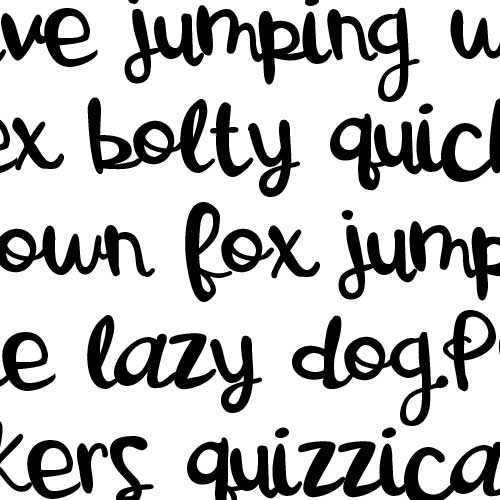 ive jumping w
ex bolty quick
own fox jump
e lazy dog.P
kers quizzica